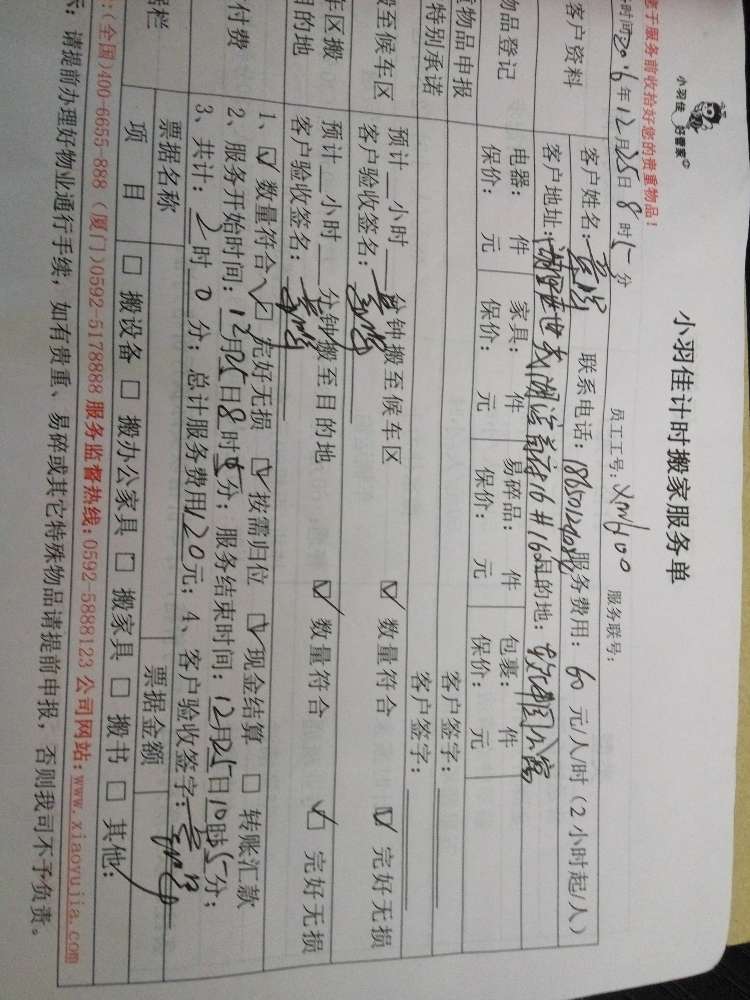 小羽佳 好管家
小羽佳计时搬家服务单
于服务前收拾好您的贵重物品！
时间2016年12月25日8时15分 员工工号：xm6100 服务联号：
客户资料
客户姓名： 联系电话： 服务费用：60元/人/时（2小时起/人）
客户地址： 目的地：
物品登记
电器： 件 家具： 件 易碎品： 件 包裹： 件
保价： 元 保价： 元 保价： 元 保价： 元
物品申报 客户签字：
特别承诺 客户签字：
搬至候车区
预计 小时 分钟搬至候车区 数量符合 完好无损
客户验收签名：
车区搬
目的地
预计 小时 分钟搬至目的地 数量符合 完好无损
客户验收签名：
付费
1、 数量符合 完好无损 按需归位 现金结算 转账汇款
2、服务开始时间：12月25日8时15分；服务结束时间：12月25日10时15分；
3、共计：2时0分；总计服务费用120元；4、客户验收签字：
票据名称 票据金额
项目 搬设备 搬办公家具 搬家具 搬书 其他：
（全国）400-6655-888（厦门）0592-5178888 服务监督热线：0592-5888123 公司网站：www.xiaoyujia.com
示：请提前办理好物业通行手续，如有贵重、易碎或其它特殊物品请提前申报，否则我司不予负责。